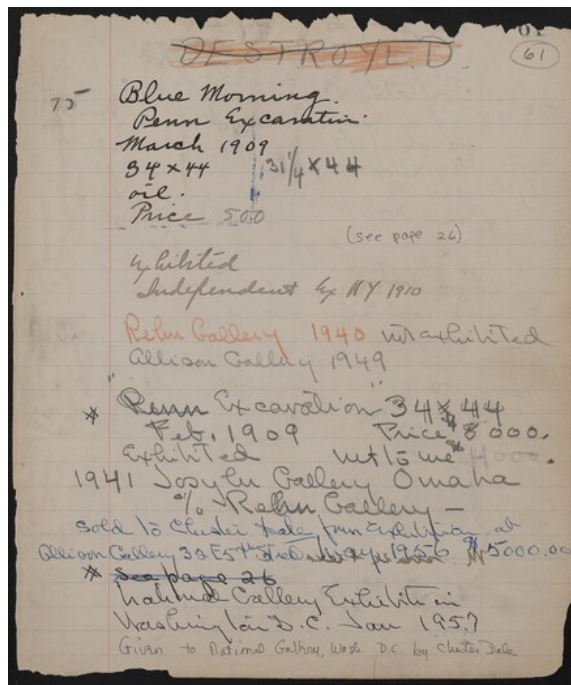 DESTROYED
61
75
Blue Morning.
Penn Excavation.
March 1909
34 x 44 31 1/4 x 44
oil.
Price 500
(see page 26)
Exhibited
Independent Ex NY 1910
Rehn Gallery 1940 not exhibited
Allison Gallery 1949
* "Penn Excavation" 34 x 44
Feb. 1909 Price $8000.
Exhibited net to me $4000.
1941 Joslyn Gallery Omaha
% Rehn Gallery –
Sold to Chester Dale from Exhibition at
Allison Gallery 32 E 57th St 1956 $5000.00
* See page 26
National Gallery Exhibition
Washington D.C. Jan 1957
Given to National Gallery, Wash. D.C. by Chester Dale